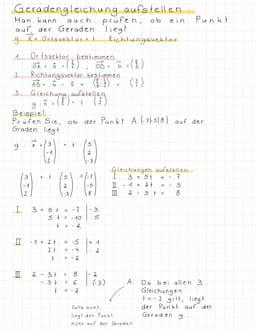 Geradengleichung aufstellen
Man kann auch prüfen, ob ein Punkt
auf der Geraden liegt
g: x⃗ = Ortsvektor + t · Richtungsvektor
1. Ortsvektor bestimmen
2. Richtungsvektor bestimmen
3. Gleichung aufstellen
Beispiel:
Prüfen Sie, ob der Punkt A (-7|-5|8) auf der
Graden liegt
g: x⃗ = (3 -1 2) + t · (5 2 -3)
(3 -1 2) + t · (5 2 -3) = (-7 -5 8)
Gleichungen aufstellen
I 3 + 5t = -7
II -1 + 2t = -5
III 2 - 3t = 8
I 3 + 5t = -7 |-3
5t = -10 |:5
t = -2
II -1 + 2t = -5 |+1
2t = -4 |:2
t = -2
III 2 - 3t = 8 |-2
-3t = 6 |:(-3)
t = -2
A: Da bei allen 3
Gleichungen
t = -2 gilt, liegt
der Punkt auf
der Geraden g
Falls nicht,
liegt der Punkt
nicht auf der Geraden!